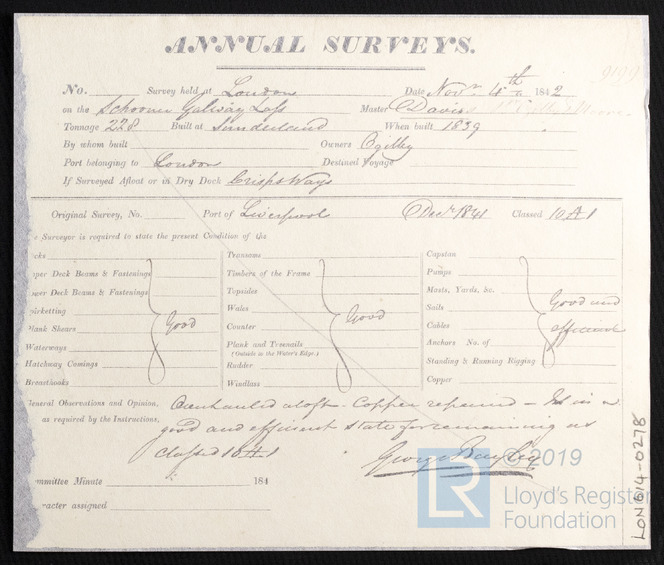 ANNUAL SURVEYS.
9199
No. Survey held at London Date Novr 4th 1842
on the Schooner Galway Lass Master Davis
Tonnage 228 Built at Sunderland When built 1839
By whom built Owners Ogilby
Port belonging to London Destined Voyage
If Surveyed Afloat or in Dry Dock Crisps Ways
Original Survey, No. Port of Liverpool Decr 1841 Classed 10 A 1
e Surveyor is required to state the present Condition of the
cks Transoms Capstan
pper Deck Beams & Fastenings Timbers of the Frame Pumps
ower Deck Beams & Fastenings Topsides Masts, Yards, &c.
picketting Wales Sails Good and
lank Shears Good Counter Good Cables efficient
Waterways Plank and Treenails Anchors No. of
(Outside to the Water's Edge.)
Hatchway Comings Rudder Standing & Running Rigging
Breasthooks Windlass Copper
General Observations and Opinion, Overhauled aloft - Copper repaired - Is in a
as required by the Instructions, good and efficient state for remaining as
classed 10 A 1
George Bayley
mmittee Minute 184
racter assigned
© 2019
LR
Lloyd's Register
Foundation
LON614-0278